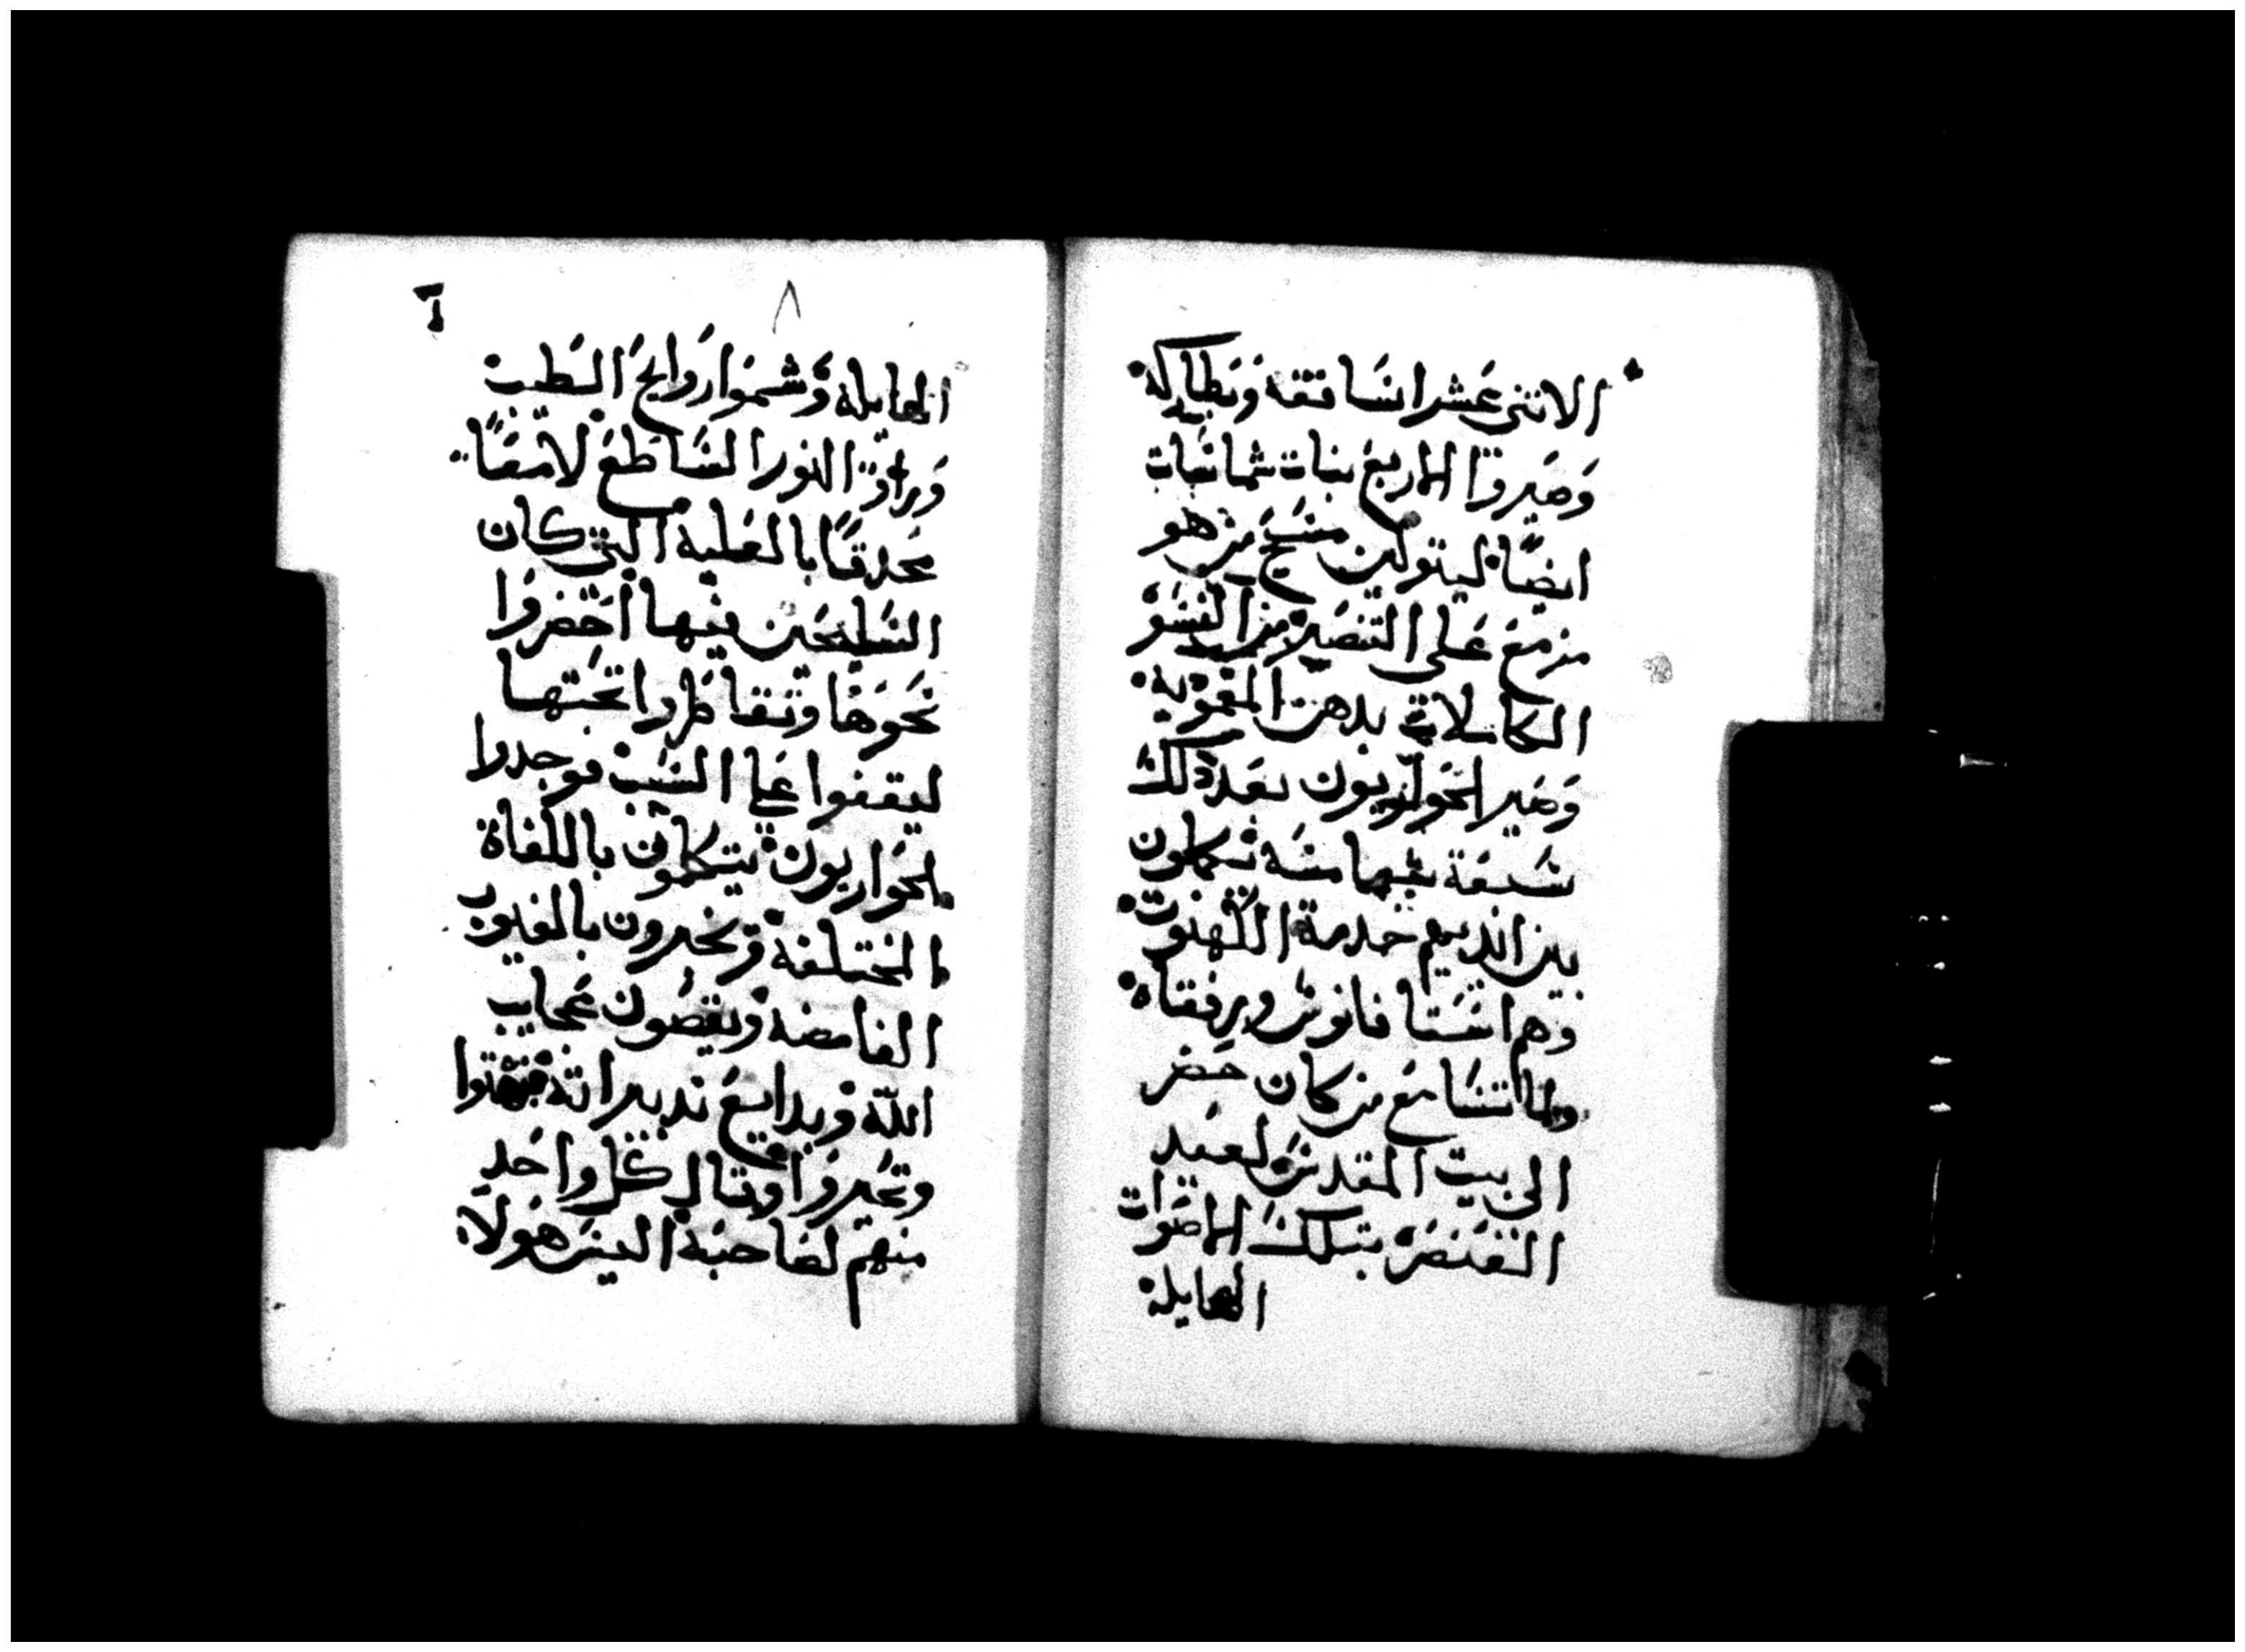 الاثنى عشر اساقفه وبطاركه
وصيروا الاربع بنات شماسات
ايضًا ليتولين مسيح من هو
مزمع على التنصير من النسو
الكاملات بدهن المعمودية
وصير الحواريون بعد ذلك
سبعة شمامسه يكملون
بين ايديهم خدمة الكهنوت
وهم استافانوس ورفقاه
ولما تسامع من كان حضر
الى بيت المقدس لعيد
العنصره بتلك الاصوات
الهايلة
٨
الهايله وشموا روايح الطيب
وراوا النور الساطع لامعًا
محدقًا بالعلية التي كان
السليحين فيها احضروا
نحوها وتقاطروا تحتها
ليقفوا على السبب فوجدوا
الحواريون يتكلمون باللغاة
المختلفة ويخبرون بالغيوب
الغامضه ويقصون عجايب
الله وبدايع تدبيراته فبهتوا
وتحيروا وقال كل واحد
منهم لصاحبه اليس هولا